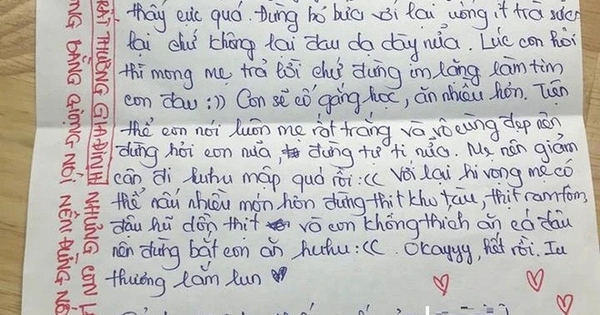 thấy cực quá. Đừng bỏ bữa với lại uống ít trà sữa
lại chứ không lại đau dạ dày nữa. Lúc con hỏi
thì mong mẹ trả lời chứ đừng im lặng làm tim
con đau :)) Con sẽ cố gắng học, ăn nhiều hơn. Tiện
thể con nói luôn mẹ rất trắng và vô cùng đẹp nên
đừng hỏi con nữa, đừng tự ti nữa. Mẹ nên giảm
cân đi huhu mập quá rồi :((  Với lại hi vọng mẹ có
thể nấu nhiều món hơn đừng thịt kho tàu, thịt ram tôm,
đậu hũ dồn thịt và con không thích ăn cá đâu
nên đừng bắt con ăn huhu :((  . Okayyy, hết rồi. Iu
thương lắm lun
RẤT THƯƠNG GIA ĐÌNH NHƯNG CON
BẰNG GIỌNG NÓI NÊN ĐỪNG